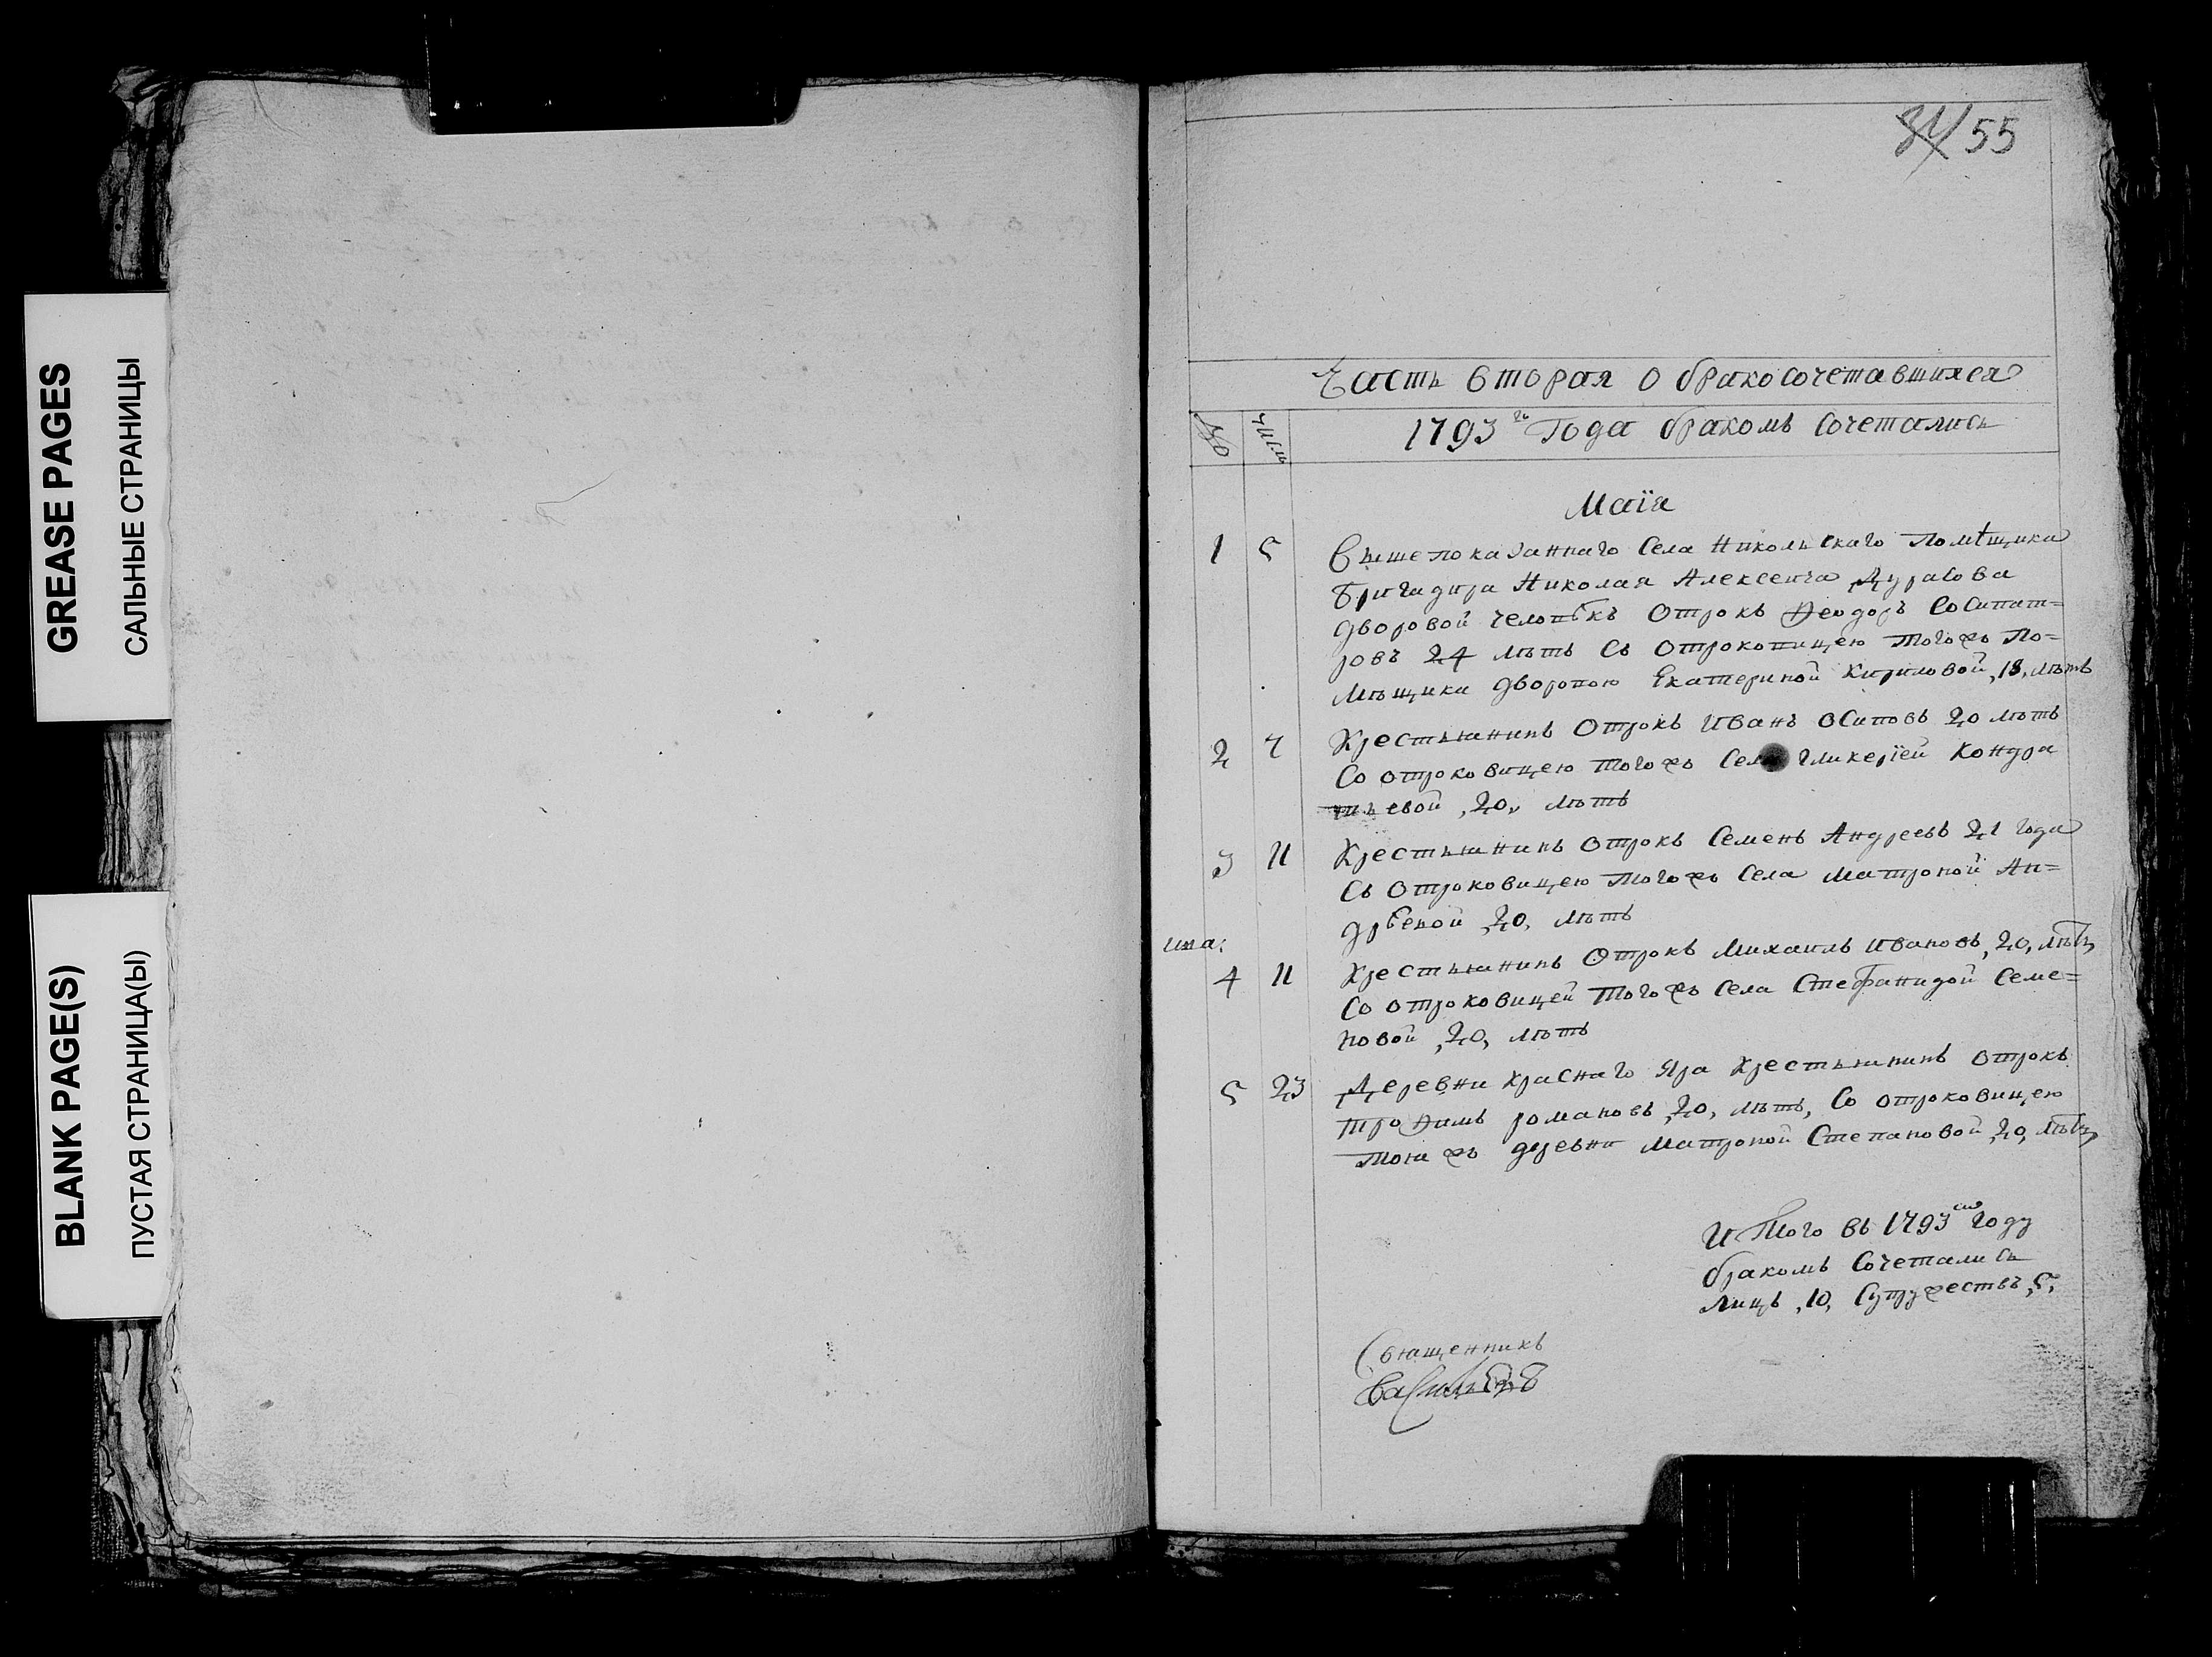 GREASE PAGES
САЛЬНЫЕ СТРАНИЦЫ
BLANK PAGE(S)
ПУСТАЯ СТРАНИЦА(Ы)
84 55
Часть вторая о бракосочетавшихся
1793 го Года бракомъ сочетались
Маїя
1 5 Вышепоказаннаго Села Никольскаго Помѣщика
Бригадира Николая Алексеича Дурасова
дворовой человѣкъ Отрокъ Ѳеодоръ Сосипат=
ровъ 24 лѣтъ съ Отроковицею тогожъ По=
мѣщика дворовою Екатериной Кириловой, 18, лѣтъ
2 7 Крестьянинъ Отрокъ Иванъ Осиповъ 20 лѣтъ
Со отроковицею тогожъ Села Гликерїей Кондра
тьевой ,20, лѣтъ
3 11 Крестьянинъ Отрокъ Семенъ Андреевъ 21 года
Съ Отроковицею тогожъ Села Матроной Ан=
дрѣевой ,20, лѣтъ
4 11 Крестьянинъ Отрокъ Михаилъ Ивановъ ,20, лѣтъ,
Со отроковицей тогожъ Села Стефанидой Семе=
новой ,20, лѣтъ
5 23 Деревни Краснаго Яра Крестьянинъ отрокъ
Троѳимъ романовъ ,20, лѣтъ, Со отроковицею
тояжъ деревни Матроной Степановой ,20, лѣтъ,
И Того въ 1793 году
бракомъ Сочетались
лицъ ,10, Супружествъ ,5,
Священникъ